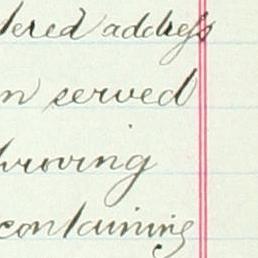 tered address
n served
proving
containing